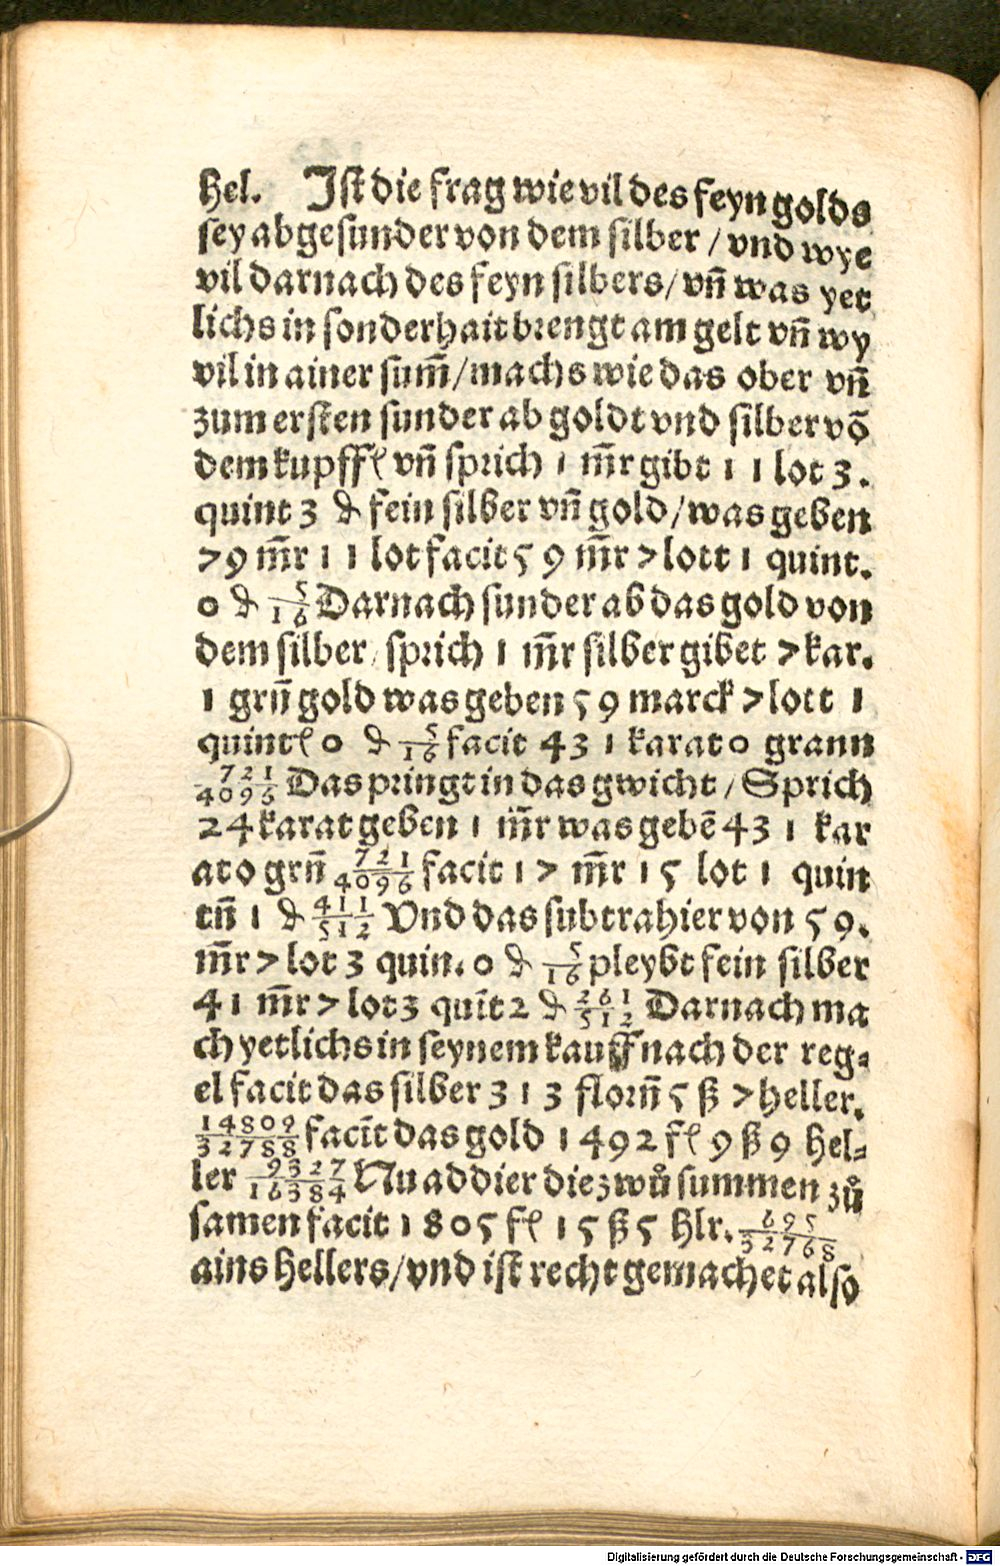 Hel. Ist die frag wie vil des feyn golds
sey abgesundert von dem silber / vnd wye
vil darnach des feyn silbers / vñ was yet
lichs in sonderhait brengt am gelt vñ wy
vil in ainer sum̃ / machs wie das ober vñ
zum ersten sunder ab goldt vnd silber võ
dem kupffl vñ sprich 1 m̃r gibt 11 lot 3.
quint 3 ₰ fein silber vñ gold / was geben
79 m̃r 11 lot facit 59 m̃r 7 lott 1 quint.
0 ₰ 5/16 Darnach sunder ab das gold von
dem silber / sprich 1 m̃r silber gibet 7 kar.
1 grñ gold was geben 59 marck 7 lott 1
quintl 0 ₰ 5/16 facit 431 karat 0 grann
721/4096 Das pringt in das gwicht / Sprich
24 karat geben 1 m̃r was gebẽ 431 kar
at 0 grñ 721/4096 facit 17 m̃r 15 lot 1 quin
tñ 1 ₰ 411/512 Vnd das subtrahier von 59.
m̃r 7 lot 3 quin. 0 ₰ 5/16 pleybt fein silber
41 m̃r 7 lot 3 quĩt 2 ₰ 261/512 Darnach ma
ch yetlichs in seynem kauff nach der reg⸗
el facit das silber 313 florñ 5 ß 7 heller.
14809/32788 facĩt das gold 1492 fl 9 ß 9 Hel⸗
ler 9327/16384 Nu addier die zwů summen zů
samen facit 1805 fl 15 ß 5 Hlr. 695/32768
ains Hellers / vnd ist recht gemachet also
Digitalisierung gefördert durch die Deutsche Forschungsgemeinschaft - DFG